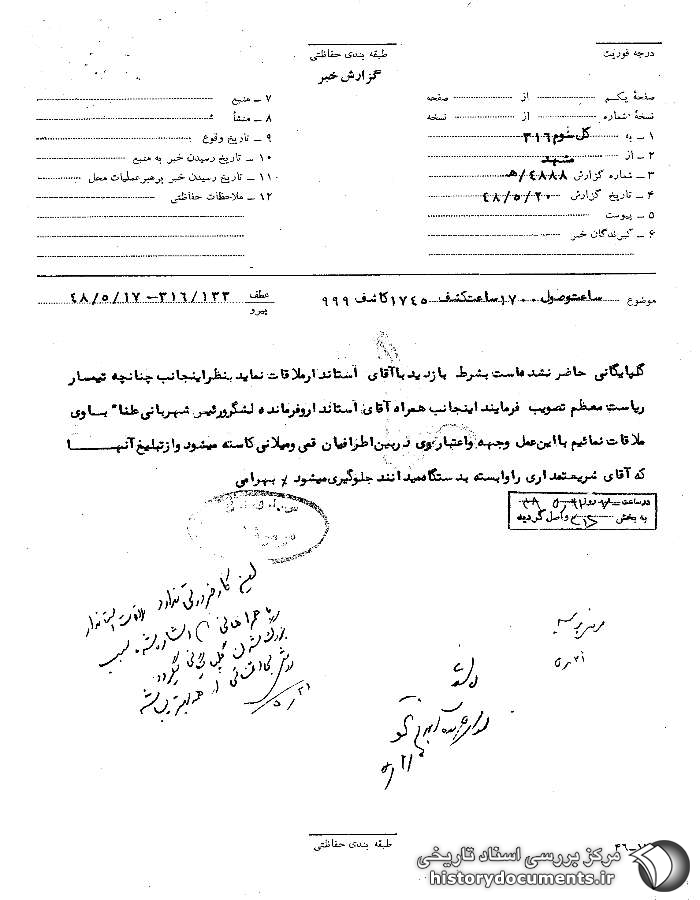 درجه فوریت
طبقه بندی حفاظتی
گزارش خبر
صفحهٔ یکم از صفحه
نسخهٔ شماره از نسخه
۱ ـ به کل سوم ۳۱۶
۲ ـ از مشهد
۳ ـ شماره گزارش ۴۸۸۸/هـ
۴ ـ تاریخ گزارش ۴۸/۵/۲۰
۵ ـ پیوست
۶ ـ گیرندگان خبر
۷ ـ منبع
۸ ـ منشأ
۹ ـ تاریخ وقوع
۱۰ ـ تاریخ رسیدن خبر به منبع
۱۱ ـ تاریخ رسیدن خبر برهبر عملیات محل
۱۲ ـ ملاحظات حفاظتی
موضوع ساعت وصول ۱۷۰۰ ساعت کشف ۱۷۴۵ کاشف ۹۹۹
عطف ۳۱۶/۱۳۳ ـ ۴۸/۵/۱۷
پیرو
گلپایگانی حاضر نشده است بشرط بازدید با آقای استاندار ملاقات نماید بنظر اینجانب چنانچه تیمسار
ریاست معظم تصویب فرمایند اینجانب همراه آقای استاندار و فرمانده لشگر و رئیس شهربانی علناً با وی
ملاقات نمائیم با این عمل وجهه و اعتبار وی در بین اطرافیان قمی و میلانی کاسته میشود و از تبلیغ آنهـا
که آقای شریعتمداری را وابسته بدستگاه میدانند جلوگیری میشود / بهرامی
در ساعت روز
به بخش ۳۱۶ واصل گردید
این کار ضرورتی ندارد ملاقات استاندار
سبب
بزرگ شدن گلپایگانی نگردد
روش بی‌اعتنائی از همه بهتر میباشد
۵/۲۱
طبقه بندی حفاظتی
مرکز بررسی اسناد تاریخی
historydocuments.ir